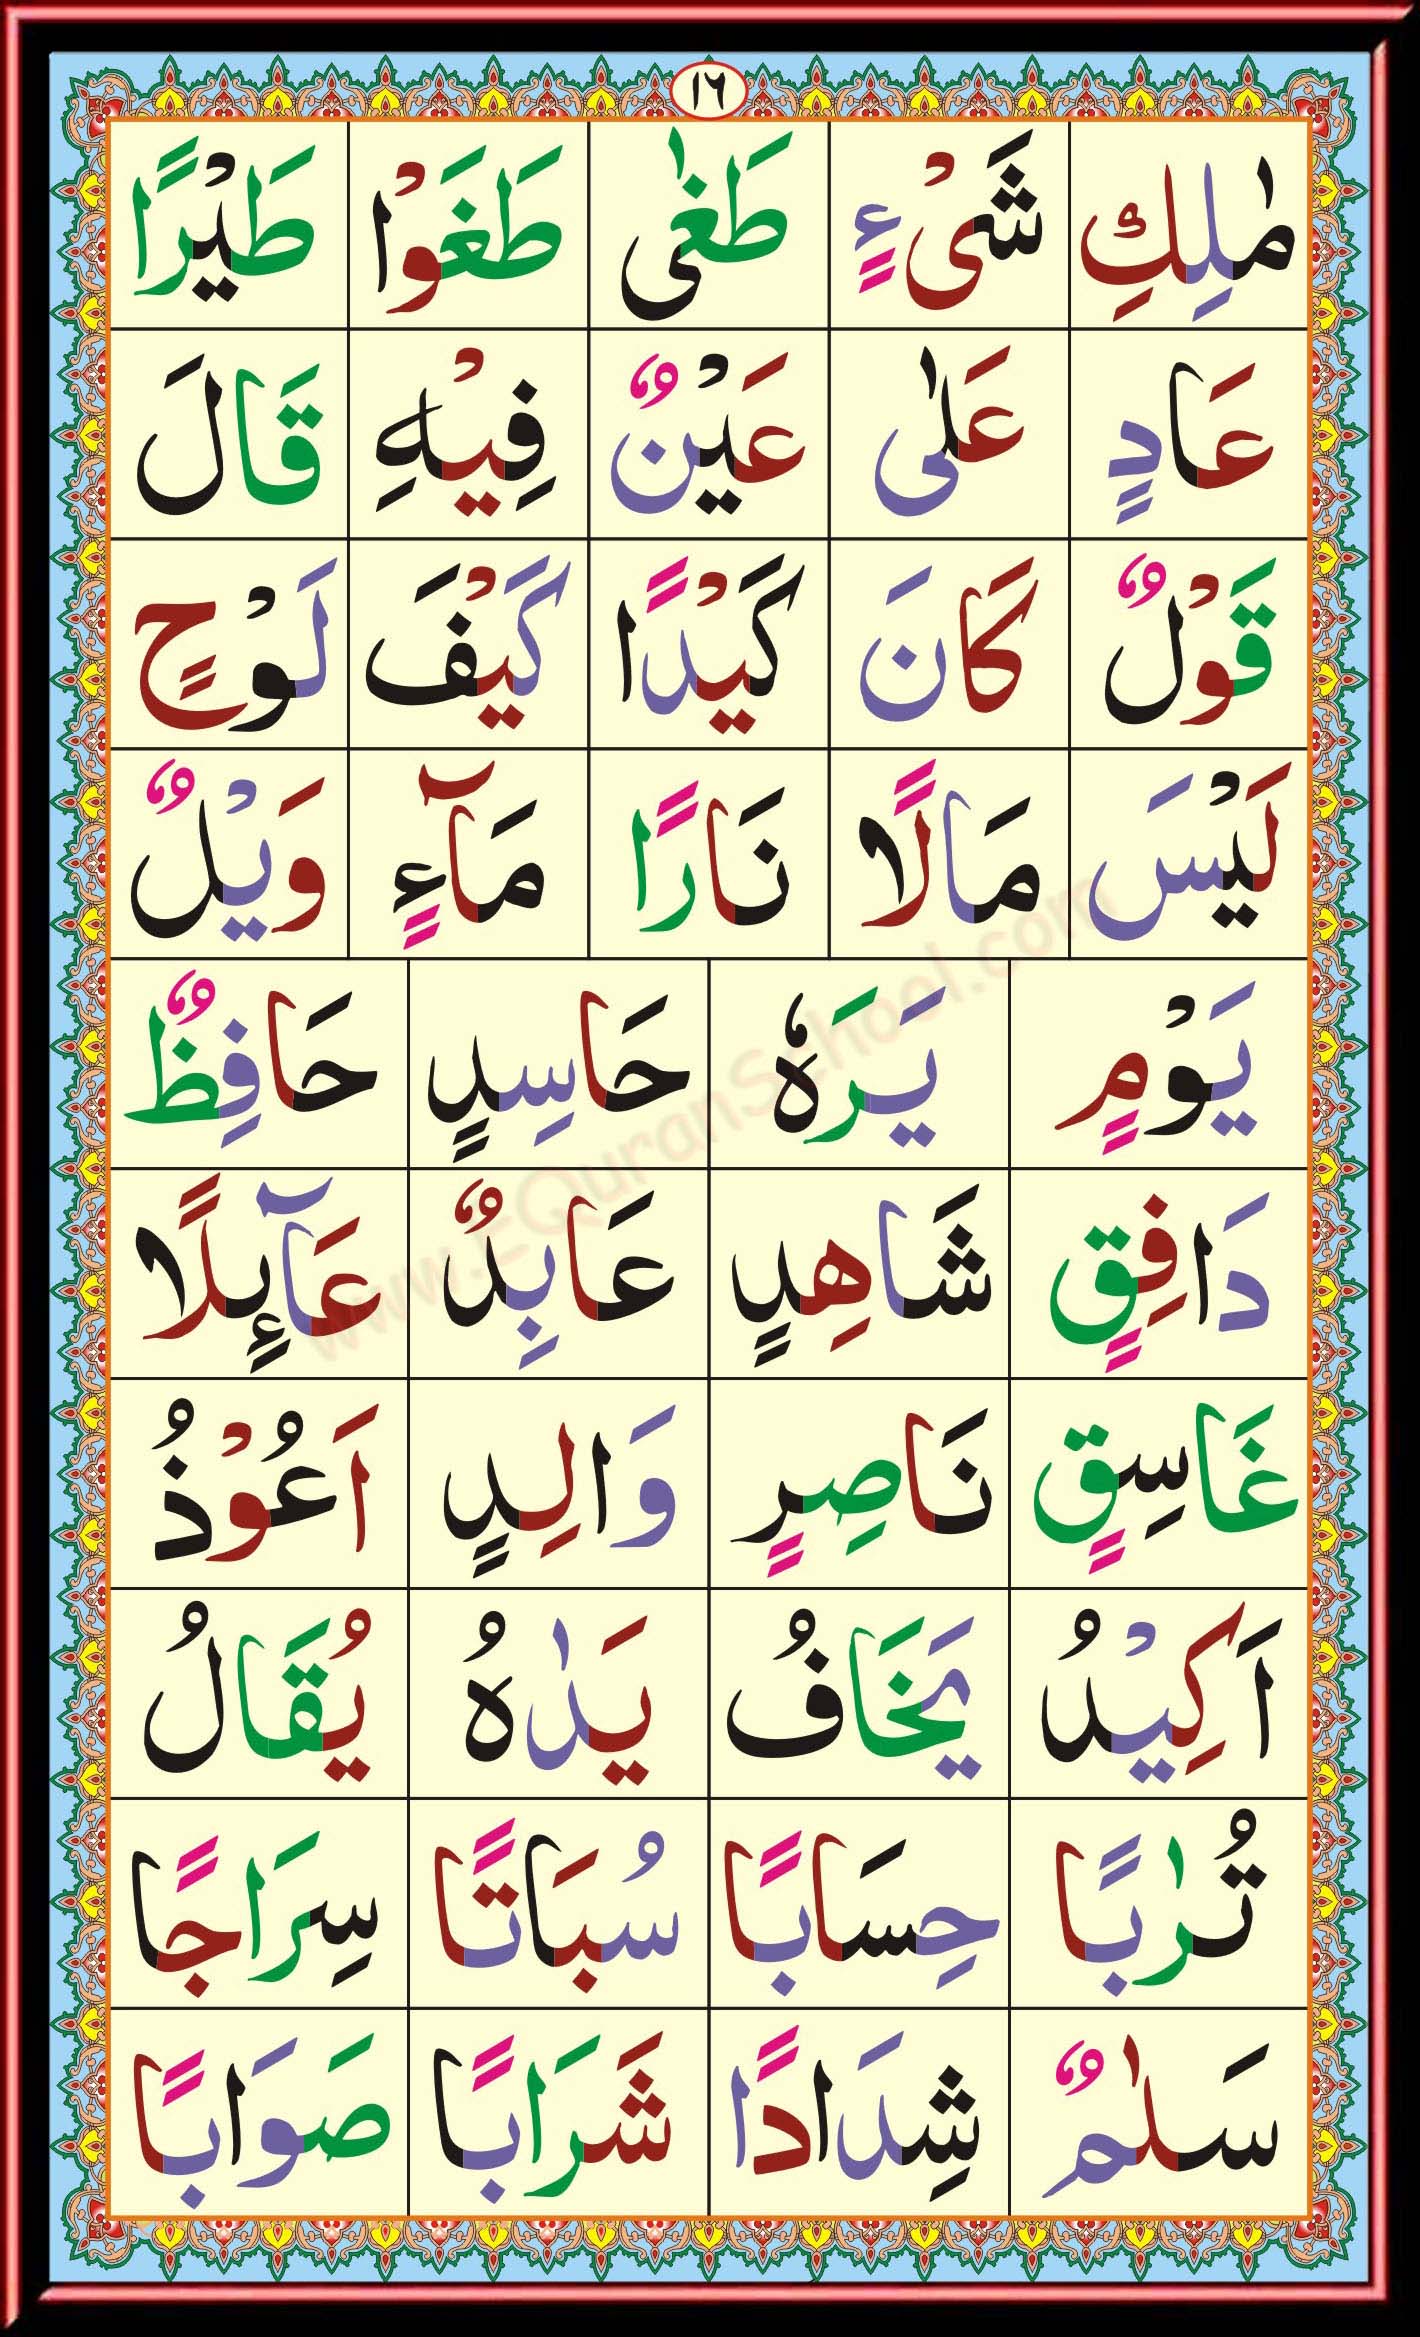 ١٦
مٰلِكِ شَیْءٍ طَغٰی طَغَوْا طَیْرًا
عَادٍ عَلٰی عَیْنٌ فِیْهِ قَالَ
قَوْلٌ كَانَ كَیْدًا كَیْفَ لَوْحٍ
لَیْسَ مَالًا نَارًا مَآءٍ وَیْلٌ
یَوْمٍ یَرَهٗ حَاسِدٍ حَافِظٌ
دَافِقٍ شَاهِدٍ عَابِدٌ عَآئِلًا
غَاسِقٍ نَاصِرٍ وَالِدٍ اَعُوْذُ
اَكِیْدُ یَخَافُ یَدٰهُ یُقَالُ
تُرٰبًا حِسَابًا سُبَاتًا سِرَاجًا
سَلٰمٌ شِدَادًا شَرَابًا صَوَابًا
www.EQuranSchool.com